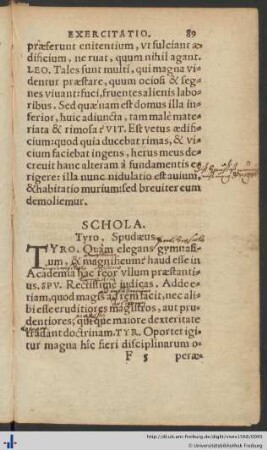 EXERCITATIO. 89
præferunt enitentium, vt fulciant æ-
dificium, ne ruat, quum nihil agant.
LEO. Tales sunt multi, qui magna vi-
dentur præstare, quum ociosi & seg-
nes viuant: fuci, fruentes alienis labo-
ribus. Sed quænam est domus illa in-
ferior, huic adiuncta, tam malè mate-
riata & rimosa? VIT. Est vetus ædifi-
cium: quod quia ducebat rimas, & vi-
cium faciebat ingens, herus meus de-
creuit hanc alteram à fundamentis e-
rigere: illa nunc nidulatio est auium,
& habitatio murium: sed breui eam
demoliemur.
SCHOLA.
Tyro, Spudæus.
TYRO. Quàm elegans gymnasi-
um, & magnificum! haud esse in
Academia hac reor vllum præstanti-
us. SPV. Rectissimè iudicas. Adde e-
tiam, quod magis ad rem facit, nec ali-
bi esse eruditiores magistros, aut pru-
dentiores, quique maiore dexteritate
tradant doctrinam. TYR. Oportet igi-
tur magna hîc fieri disciplinarum o-
F 5 peræ-
http://dl.ub.uni-freiburg.de/diglit/vives1568/0095
Universitätsbibliothek Freiburg